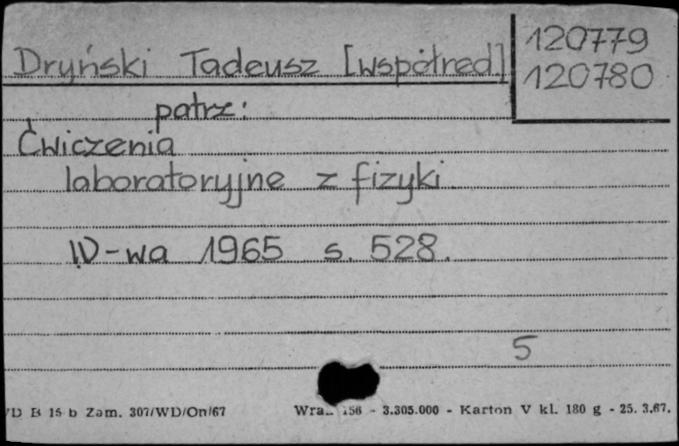 120779
Dryński Tadeusz [współred]
120780
patrz:
Ćwiczenia
laboratoryjne z fizyki
W-wa 1965 s. 528.
5
D B 15 b Zam. 307/WD/On/67 156 - 3.305.000 - Karton V kl. 180 g - 25. 3.67.